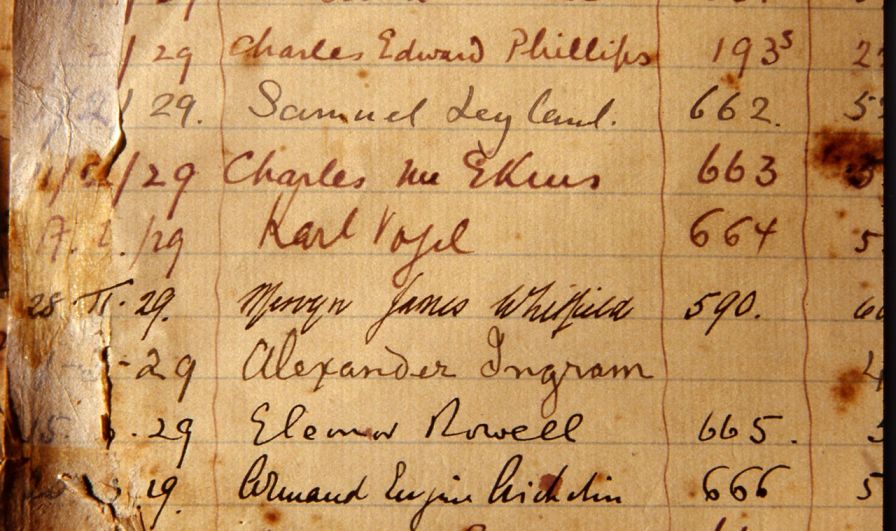 /29 Charles Edward Phillips 193s 2
/2/29. Samuel Leyland. 662. 5
/29 Charles Mc Ekins 663
/29 Karl Vogel 664 5
28.II.29. Mervyn James Whitfield 590. 60
-29 Alexander Ingram 4
15. .29 Elenor Rowell 665. 5
.29. Armand Eugène 666 5